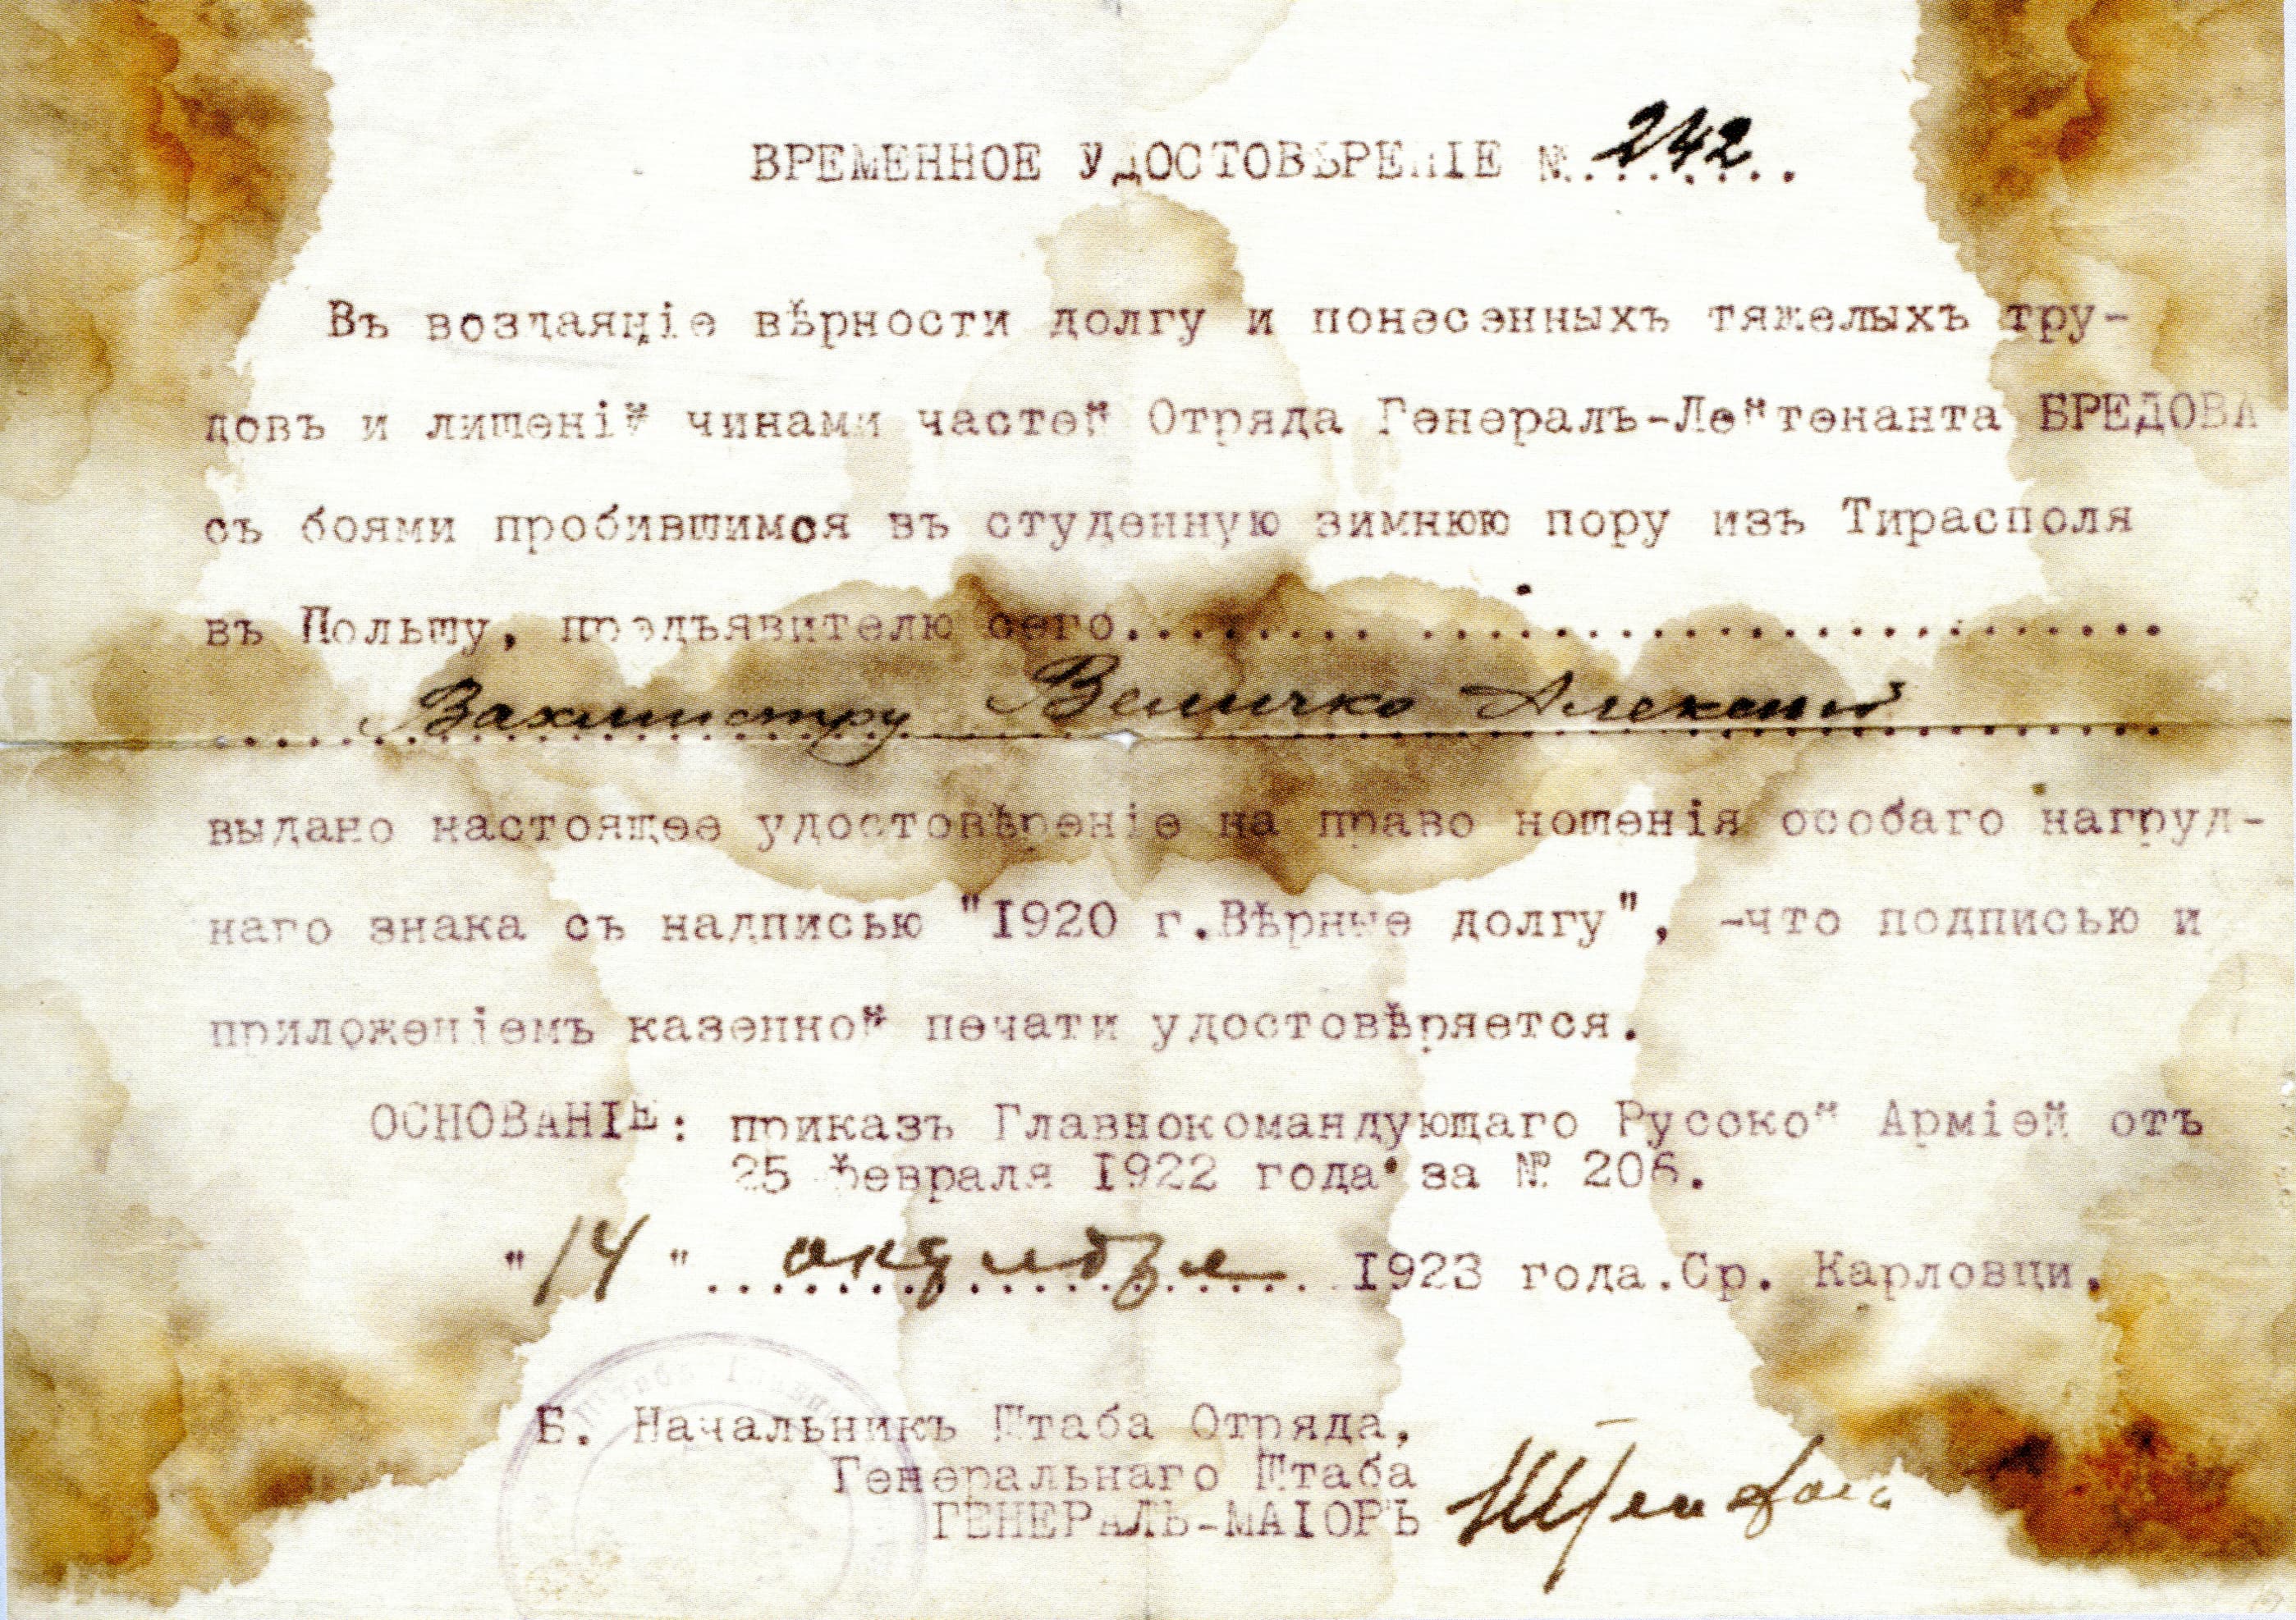 ВРЕМЕННОЕ УДОСТОВѢРЕНІЕ №. 242
Въ воздаяніе вѣрности долгу и понесенныхъ тяжелыхъ тру-
довъ и лишеній чинами частей Отряда Генералъ-Лейтенанта БРЕДОВА
съ боями пробившимся въ студенную зимнюю пору изъ Тирасполя
въ Польшу, предъявителю сего.................................
Вахмистру Величко Алексей
выдано настоящее удостовѣреніе на право ношенія особаго нагруд-
наго знака съ надписью "1920 г.Вѣрные долгу", -что подписью и
приложеніемъ казенной печати удостовѣряется.
ОСНОВАНІЕ: приказъ Главнокомандующаго Русской Арміей отъ
25 февраля 1922 года за № 206.
"14" октября 1923 года.Ср. Карловци.
Б. Начальникъ Штаба Отряда,
Генеральнаго Штаба
ГЕНЕРАЛЪ-МАІОРЪ